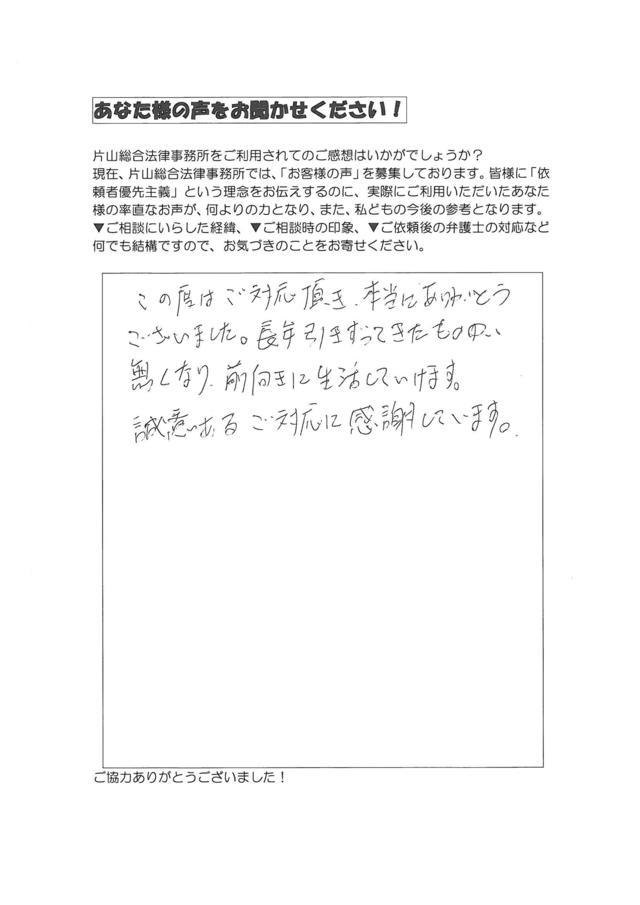 あなた様の声をお聞かせください！
片山総合法律事務所をご利用されてのご感想はいかがでしょうか？
現在、片山総合法律事務所では、「お客様の声」を募集しております。皆様に「依
頼者優先主義」という理念をお伝えするのに、実際にご利用いただいたあなた
様の率直なお声が、何よりの力となり、また、私どもの今後の参考となります。
▼ご相談にいらした経緯、▼ご相談時の印象、▼ご依頼後の弁護士の対応など
何でも結構ですので、お気づきのことをお寄せください。
この度はご対応頂き、本当にありがとう
ございました。長年引きずってきたものが
無くなり、前向きに生活していけます。
誠意あるご対応に感謝しています。
ご協力ありがとうございました！